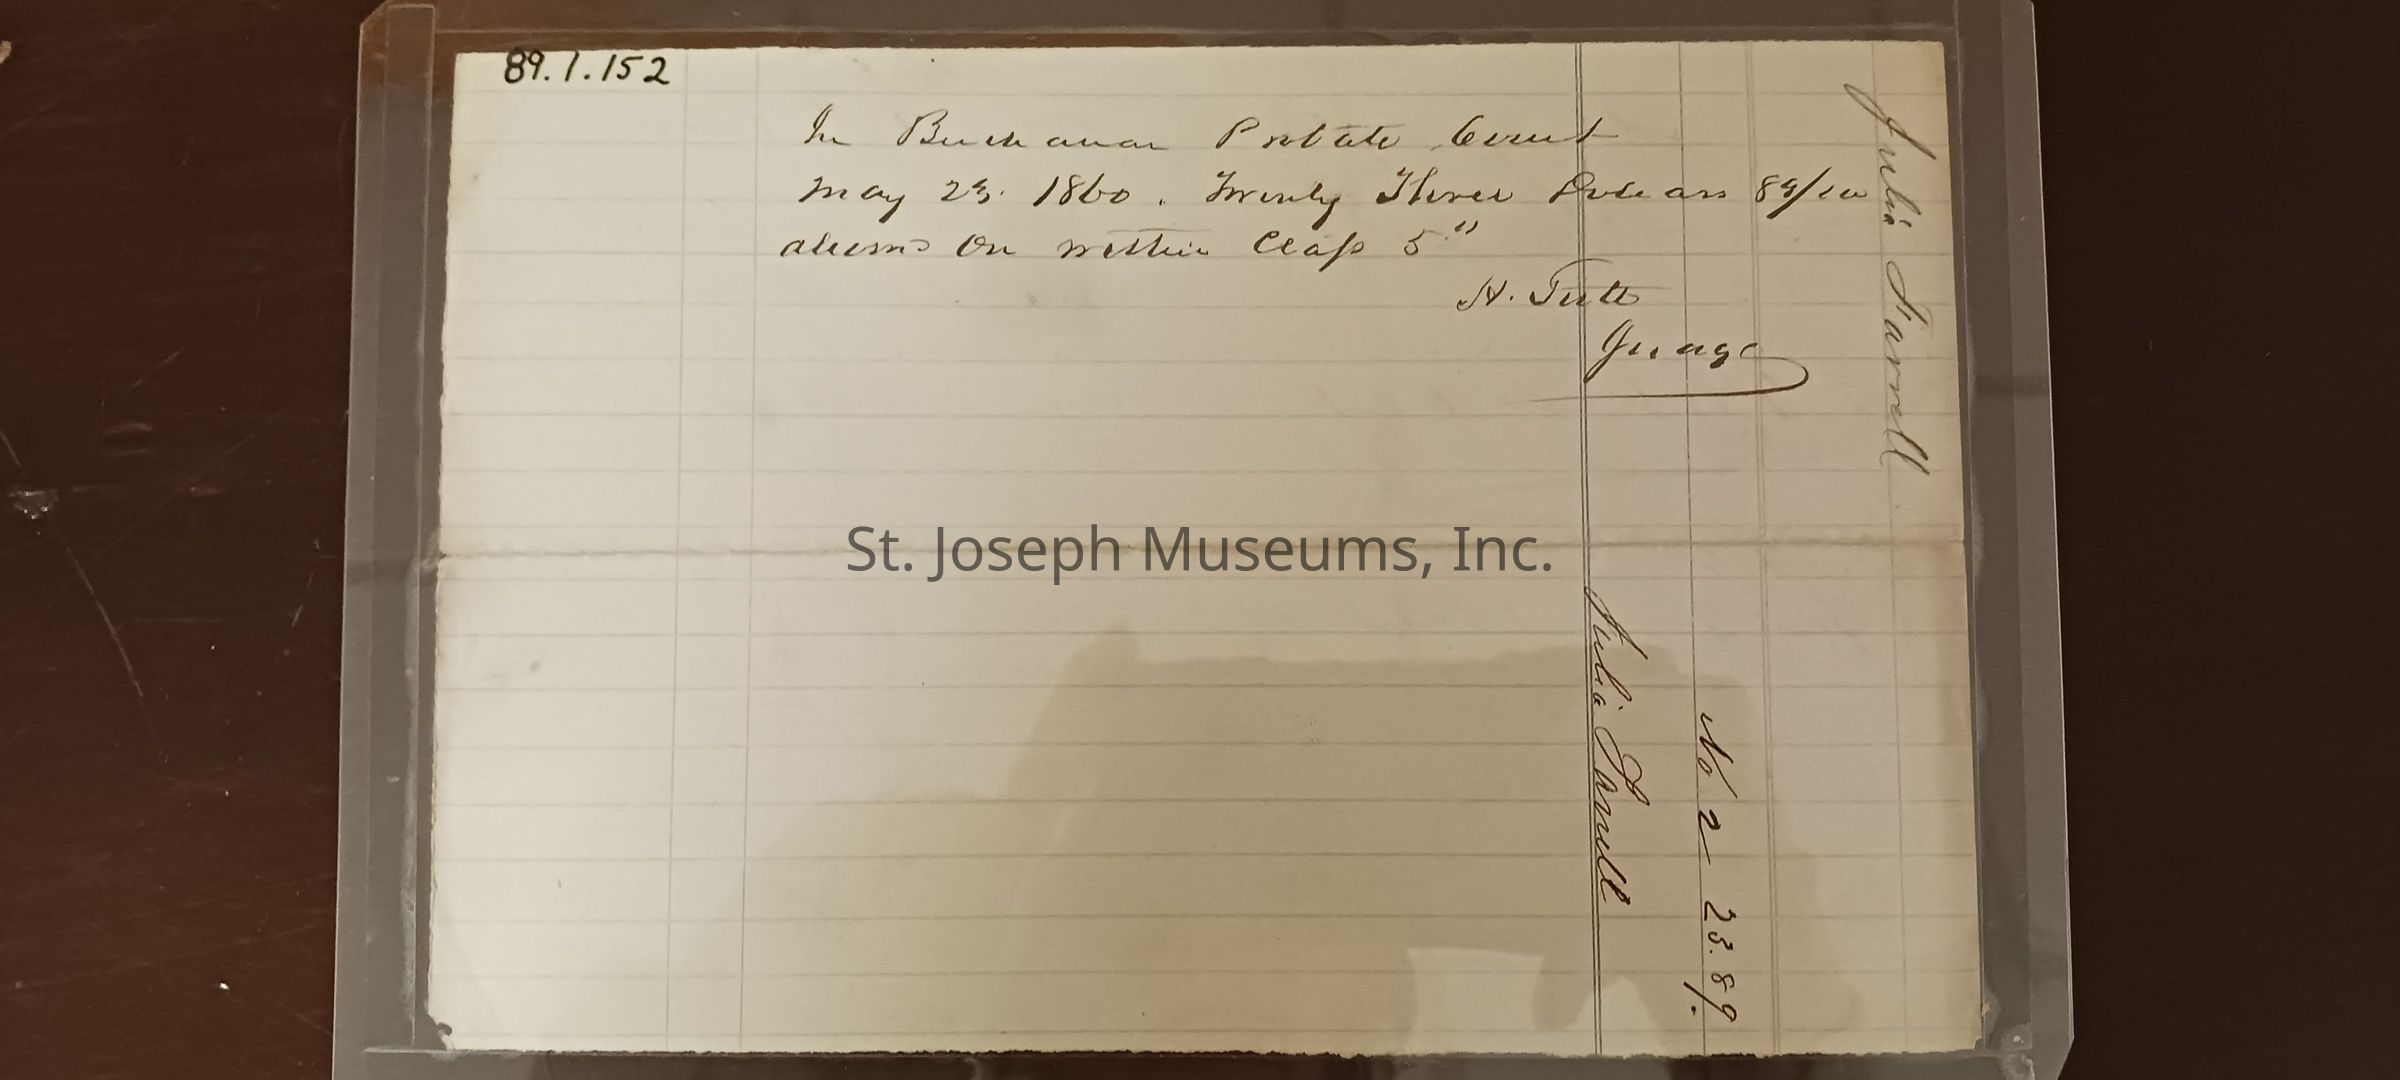 89.1.152
In Buchanan Probate Court
May 23. 1860. Twenty Three Dollars 89/100
allowed on within Class 5"
H. Tutt
Judge
Julia Farrell
St. Joseph Museums, Inc.
Julia Farrell
No 2 23.89